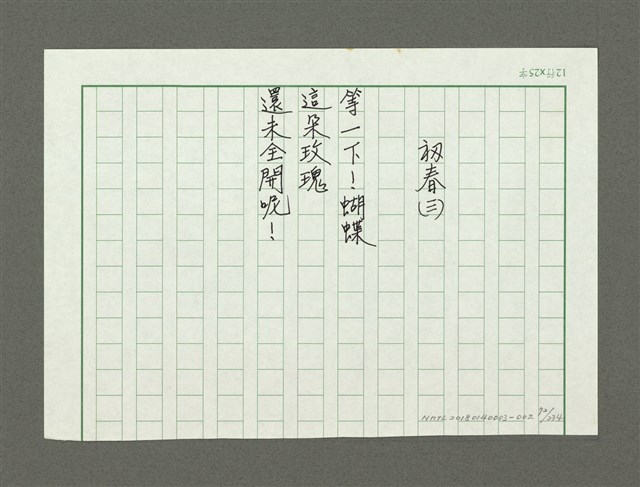 12行×25字
初春(三)
等一下!蝴蝶
這朵玫瑰
還未全開呢!
NMTL20180140003-002 92/234